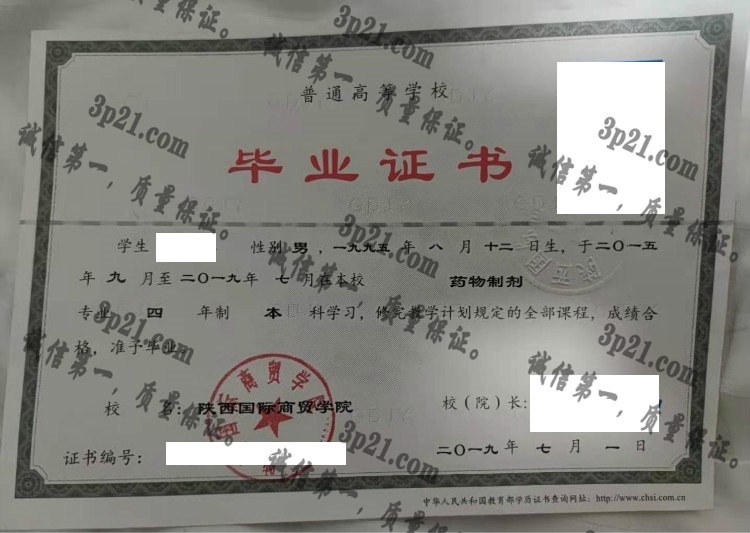 普通高等学校
毕业证书
学生 性别 男，一九九五年八月十二日生，于二〇一五
年九月至二〇一九年七月在本校 药物制剂
专业 四 年制 本 科学习，修完教学计划规定的全部课程，成绩合
格，准予毕业。
校 名：陕西国际商贸学院
校（院）长：
证书编号：
二〇一九年七月一日
中华人民共和国教育部学历证书查询网址：http://www.chsi.com.cn
3p21.com
诚信第一，质量保证。
3p21.com
诚信第一，质量保证。
3p21.com
诚信第一，质量保证。
3p21.com
诚信第一，质量保证。
3p21.com
诚信第一，质量保证。
3p21.com
诚信第一，质量保证。
3p21.com
诚信第一，质量保证。